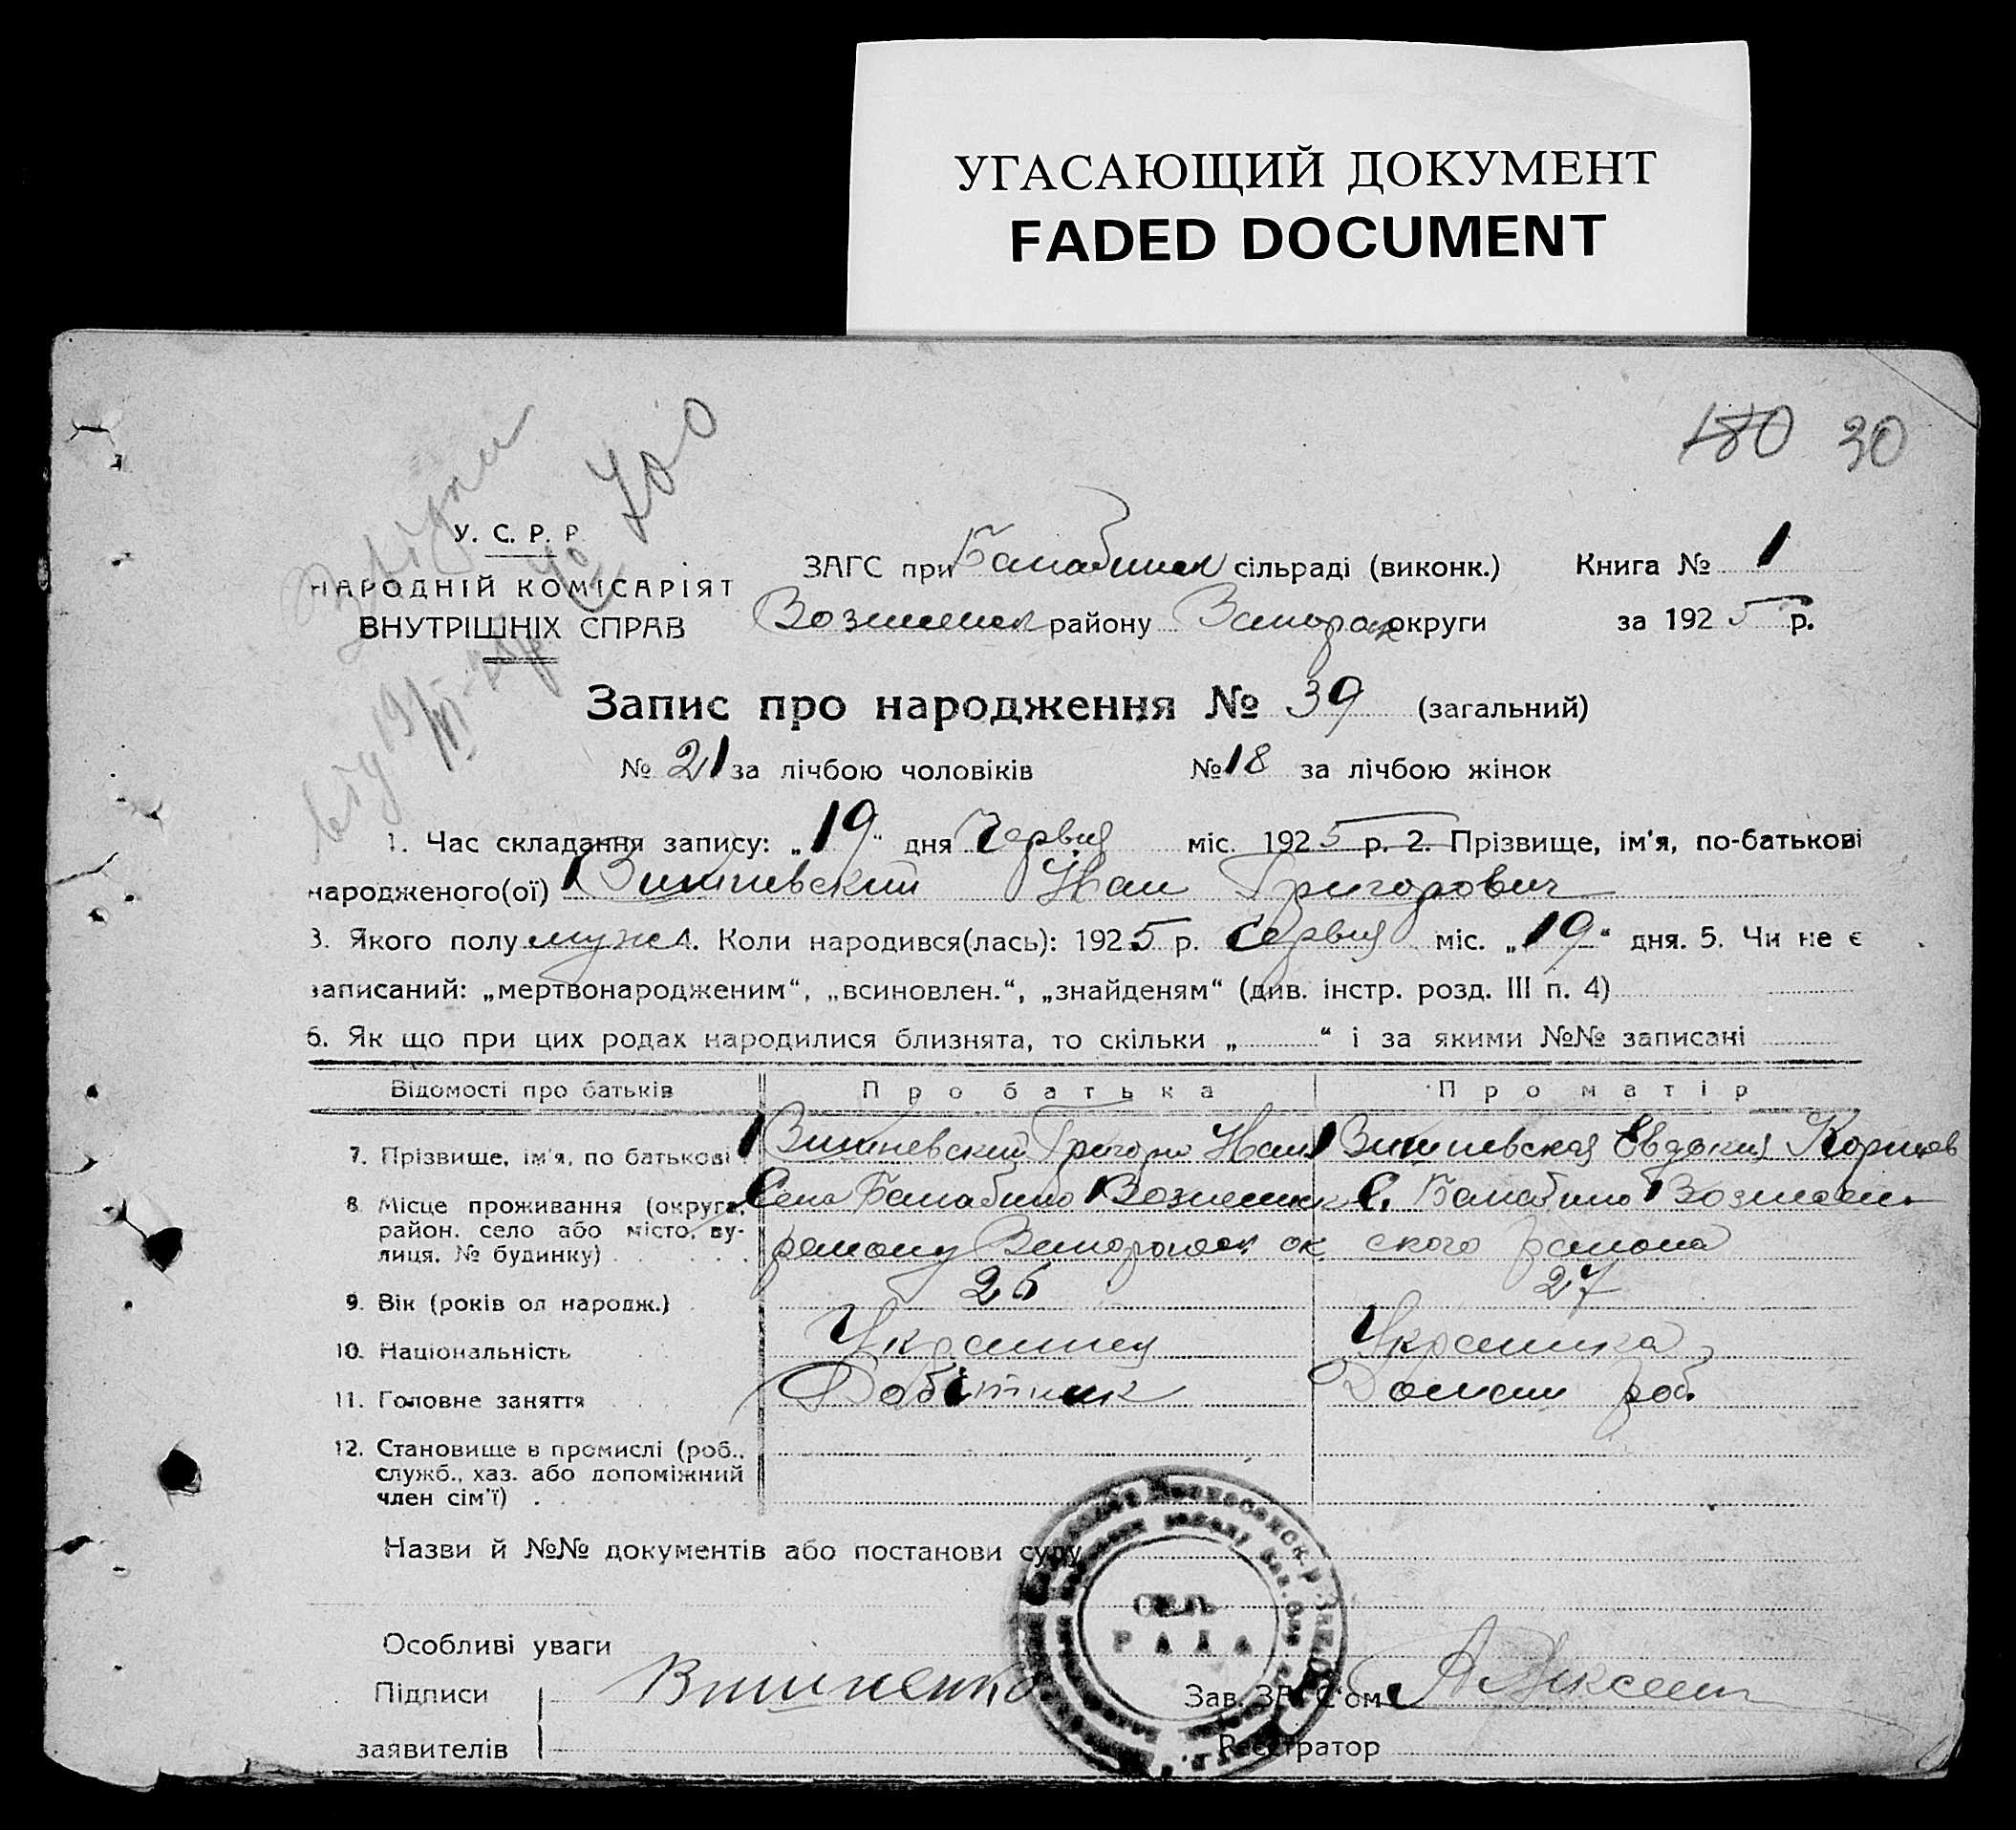 УГАСАЮЩИЙ ДОКУМЕНТ
FADED DOCUMENT
180 30
У. С. Р. Р.
НАРОДНІЙ КОМІСАРІЯТ
ВНУТРІШНІХ СПРАВ
ЗАГС при Балабинск сільраді (виконк.) Книга № 1
Вознесенск району Запорож округи за 1925 р.
Запис про народження № 39 (загальний)
№ 21 за лічбою чоловіків № 18 за лічбою жінок
1. Час складання запису: „19“ дня Червня міс. 1925 р. 2. Прізвище, ім'я, по-батькові
народженого(ої) Вишневский Иван Григорович
3. Якого полу муж 4. Коли народився(лась): 1925 р. Червня міс. „19“ дня. 5. Чи не є
записаний: „мертвонародженим“, „всиновлен.“, „знайденям“ (див. інстр. розд. III п. 4)
6. Як що при цих родах народилися близнята, то скільки „ “ і за якими №№ записані
Відомості про батьків Про батька Про матір
7. Прізвище, ім'я, по батькові Вишневский Григори Иван Вишневская Евдокия Корнеев
8. Місце проживання (округа, район, село або місто, вулиця, № будинку) Село Балабино Вознесенск С. Балабино Вознесен
району Запорожск ок ского района
9. Вік (років од народж.) 26 27
10. Національність Украинец Украинка
11. Головне заняття Робітник Домашн роб.
12. Становище в промислі (роб.,
служб., хаз. або допоміжний
член сім'ї)
Назви й №№ документів або постанови суду
СІЛЬ
РАДА
Особливі уваги
Підписи Вишненко Зав. ЗАГС'ом
заявителів Реєстратор